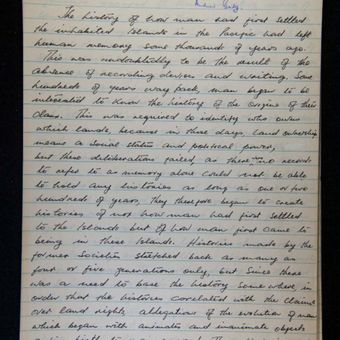 The history of how man had first settled
the inhabited Islands in the Pacific had left
human memory some thousands of years ago.
This was undoubtedly to be the result of the
absence of recording devices and writing. Some
hundreds of years way back, man began to be
interested to know the history of the origins of their
Clans. This was required to identify who owns
which lands, because in those days, land ownership
means a social status and political power,
but these deliberations failed as there was no records
to refer to as memory alone could not be able
to hold any histories as long as one or five
hundreds of years, they therefore began to create
histories of not how man had first settled
to the Islands but of how man first came to
being in these Islands. Histories made by the
former Societies stretched back as many as
four or five generations only, but since there
was a need to base the history some where, in
order that the histories correlated with the claims
over land rights, allegations of the evolution of man
which began with animates and inanimate objects